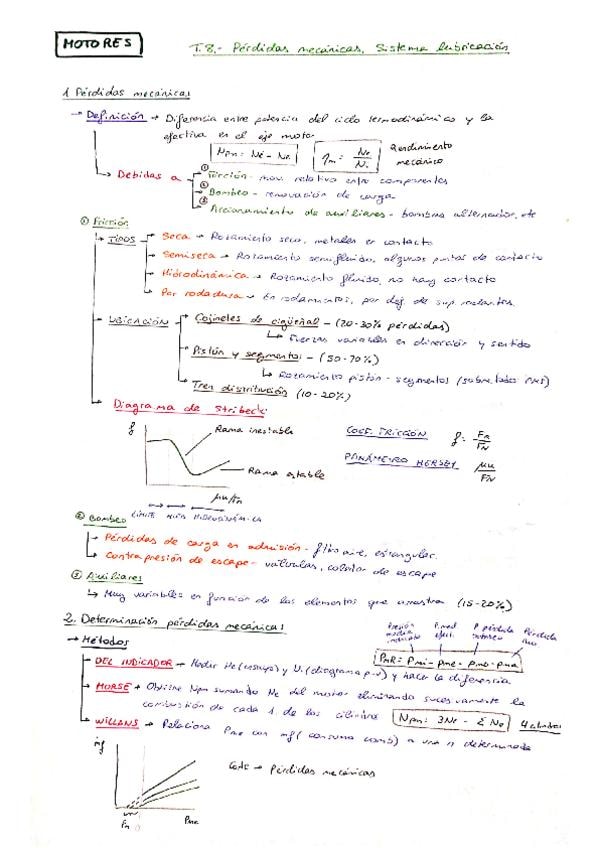 MOTORES
T.8.- Pérdidas mecánicas. Sistema lubricación
1 Pérdidas mecánicas
→ Definición → Diferencia entre potencia del ciclo termodinámico y la
efectiva en el eje motor
Npm = Ni - Ne
ηm = Ne / Ni
Rendimiento mecánico
Debidas a
① Fricción - mov. relativo entre componentes
② Bombeo - renovación de carga
③ Accionamiento de auxiliares - bombas, alternador, etc
① Fricción
TIPOS
Seca → Rozamiento seco, metales en contacto
Semiseca → Rozamiento semifluido, algunos puntos de contacto
Hidrodinámica → Rozamiento fluido, no hay contacto
Por rodadura → En rodamientos, por def de sup. rodantes
UBICACIÓN
Cojinetes de cigüeñal - (20-30% pérdidas)
Fuerzas variables en dirección y sentido
Pistón y segmentos - (50-70%)
Rozamiento pistón - segmentos (sobre todo PMS)
Tren distribución (10-20%)
Diagrama de Stribeck
f
Rama inestable
Rama estable
COEF. FRICCIÓN f = FR / FN
PARÁMETRO HERSEY μu / FN
μu/Fn
LÍMITE MIXTA HIDRODINÁMICA
② Bombeo
Pérdidas de carga en admisión - filtro aire, estrangular.
Contrapresión de escape - válvulas, colector de escape
③ Auxiliares
Muy variables en función de los elementos que arrastra (15-20%)
2. Determinación pérdidas mecánicas
→ Métodos
Presión media indicada
P. med efect.
P. pérdida bombeo
Pérdida aux
PmR = Pmi - pme - pmb - pma
DEL INDICADOR → Medir Ne (ensayo) y Ni (diagrama p-v) y hacer la diferencia
MORSE → Obtiene Npm sumando Ne del motor eliminando sucesivamente la
combustión de cada 1 de los cilindros
Npm = 3Ne - Σ Ne
4 cilindros
WILLANS → Relaciona Pme con ṁf (consumo comb) a una n determinada
ṁf
Corte → Pérdidas mecánicas
Pme